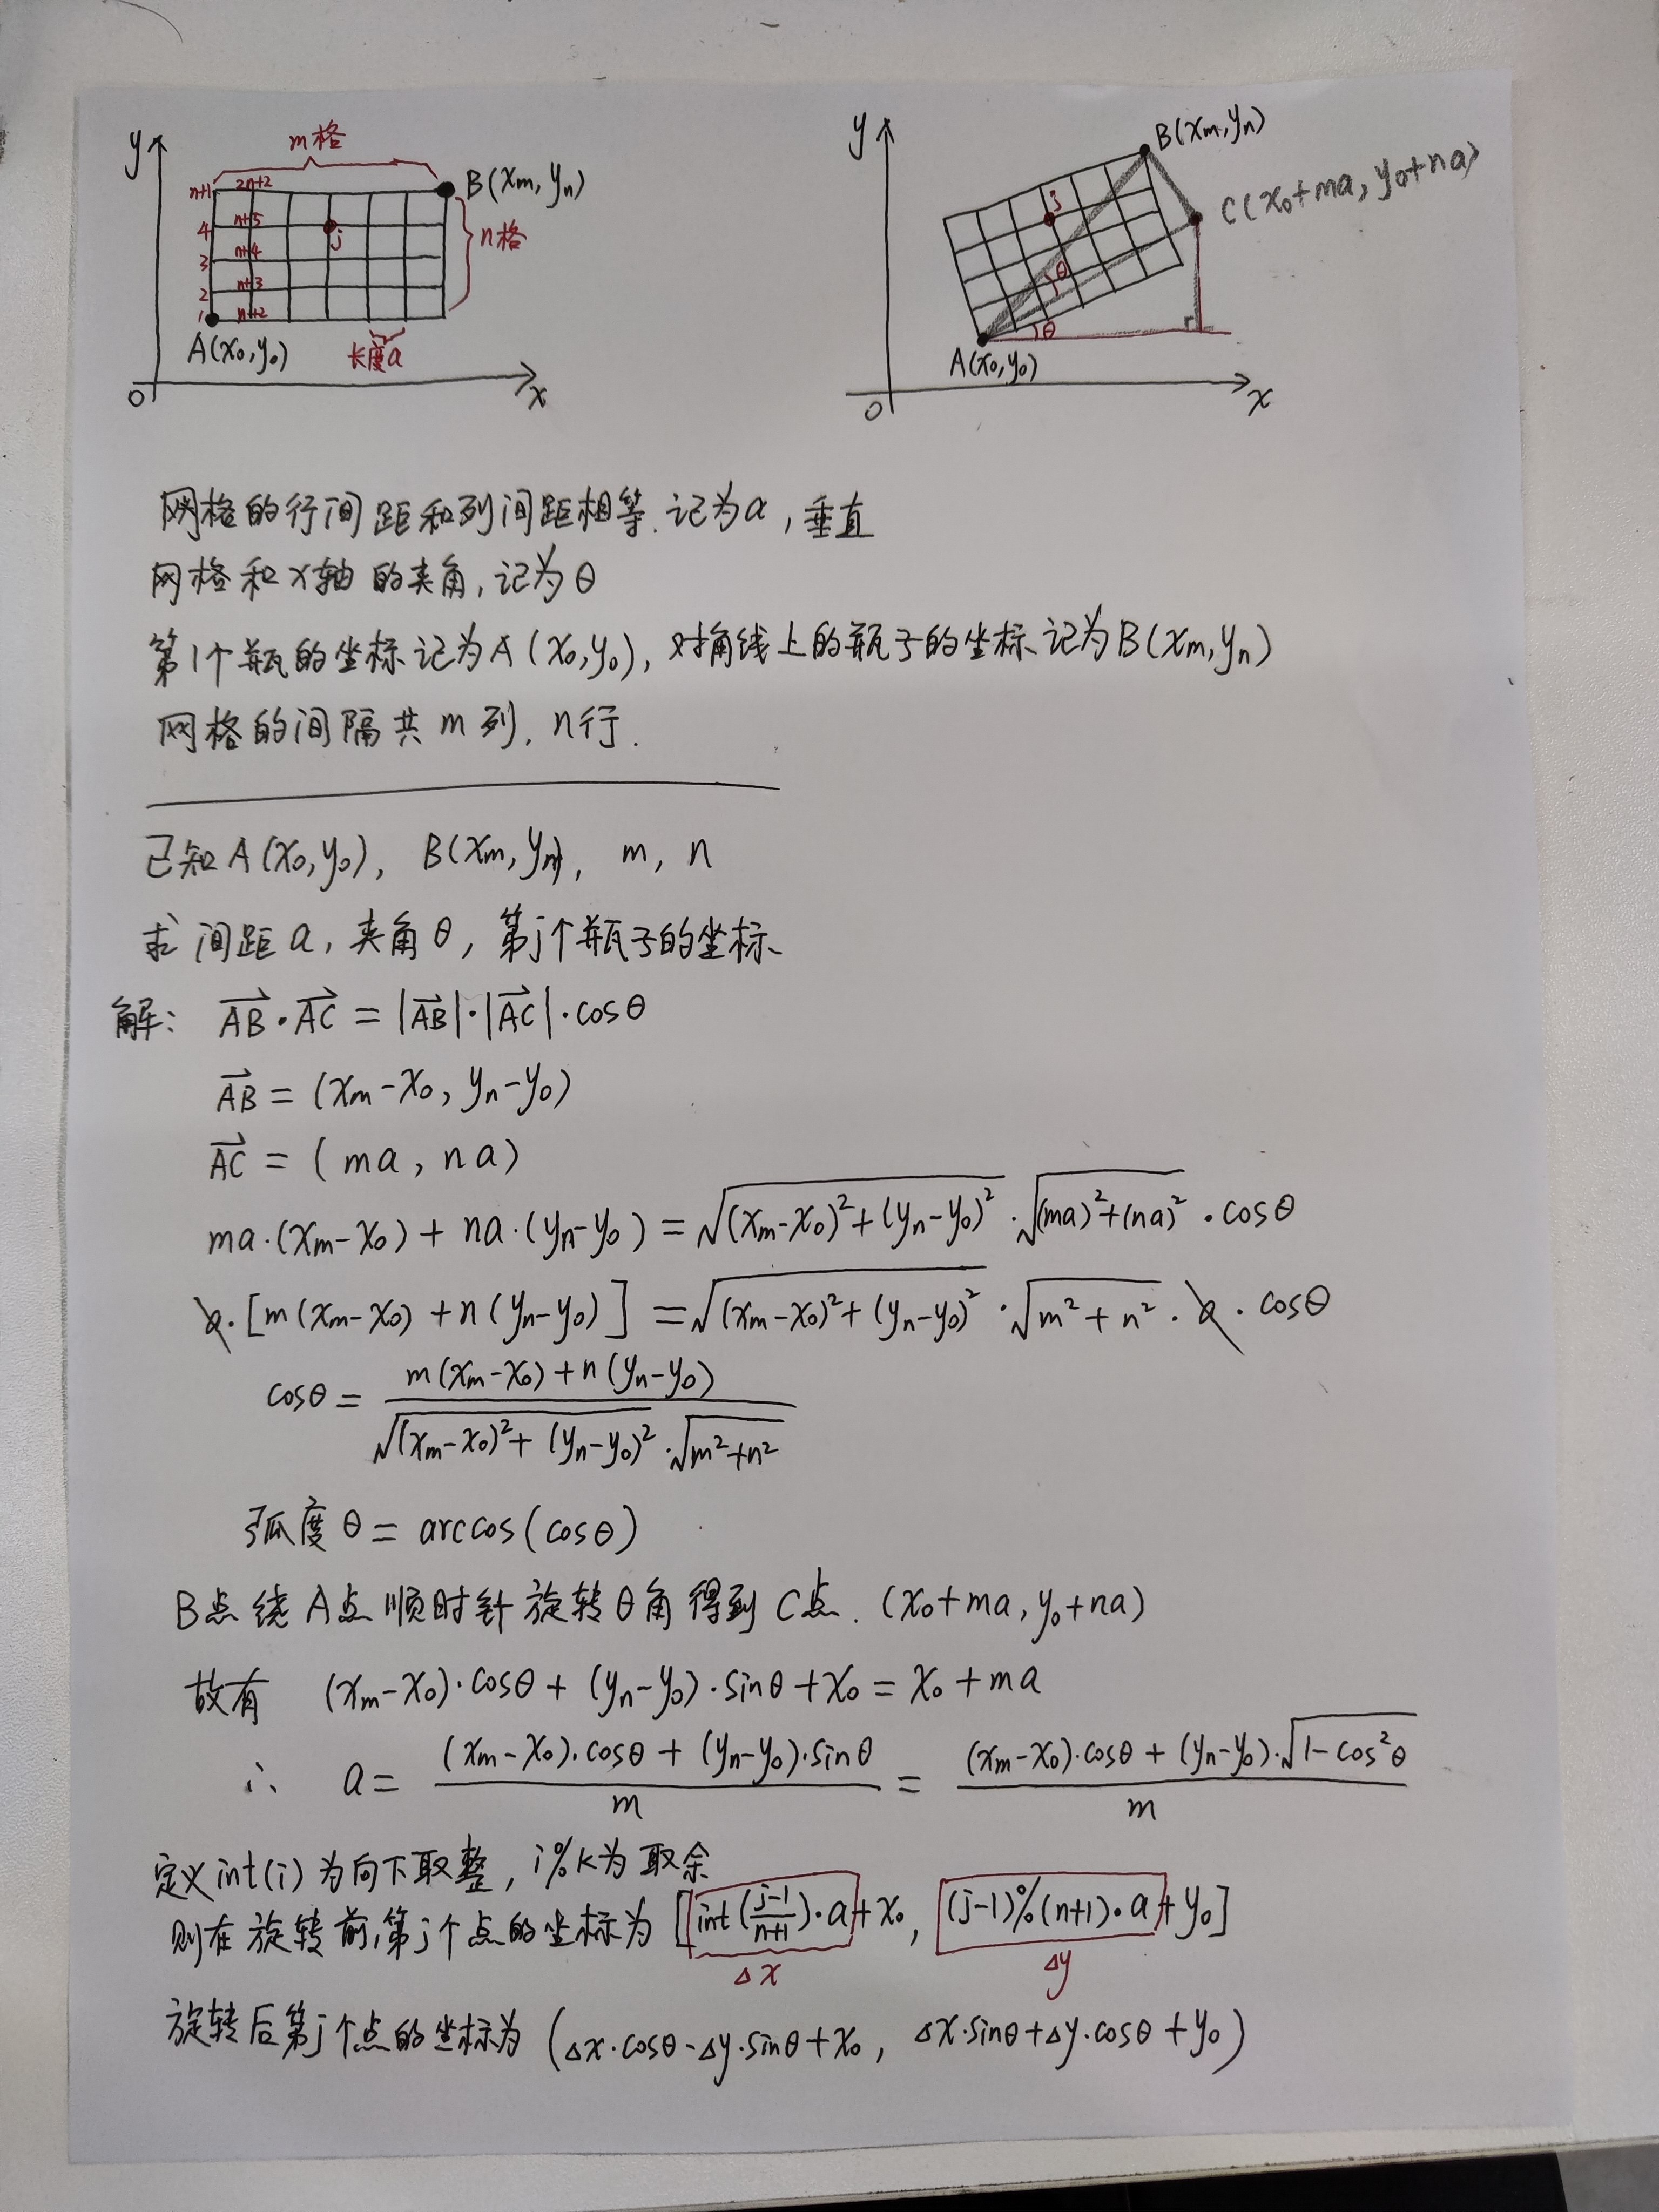 y
m格
n+1
2n+2
B(xm, yn)
4
n+5
j
n格
3
n+4
2
n+3
1
n+2
A(x0, y0)
长度a
0
x
y
B(xm, yn)
j
C(x0+ma, y0+na)
θ
θ
A(x0, y0)
0
x
网格的行间距和列间距相等.记为a,垂直
网格和x轴的夹角,记为θ
第1个瓶的坐标记为A(x0,y0),对角线上的瓶子的坐标记为B(xm,yn)
网格的间隔共m列,n行.
已知A(x0,y0), B(xm,yn), m, n
求间距a,夹角θ,第j个瓶子的坐标
解: $\overrightarrow{AB}\cdot\overrightarrow{AC}=|\overrightarrow{AB}|\cdot|\overrightarrow{AC}|\cdot\cos\theta$
$\overrightarrow{AB}=(x_m-x_0, y_n-y_0)$
$\overrightarrow{AC}=(ma, na)$
$ma\cdot(x_m-x_0)+na\cdot(y_n-y_0)=\sqrt{(x_m-x_0)^2+(y_n-y_0)^2}\cdot\sqrt{(ma)^2+(na)^2}\cdot\cos\theta$
$a\cdot[m(x_m-x_0)+n(y_n-y_0)]=\sqrt{(x_m-x_0)^2+(y_n-y_0)^2}\cdot\sqrt{m^2+n^2}\cdot a\cdot\cos\theta$
$\cos\theta=\frac{m(x_m-x_0)+n(y_n-y_0)}{\sqrt{(x_m-x_0)^2+(y_n-y_0)^2}\cdot\sqrt{m^2+n^2}}$
弧度θ=arccos(cosθ)
B点绕A点顺时针旋转θ角得到C点.(x0+ma,y0+na)
故有 $(x_m-x_0)\cdot\cos\theta+(y_n-y_0)\cdot\sin\theta+x_0=x_0+ma$
∴ $a=\frac{(x_m-x_0)\cdot\cos\theta+(y_n-y_0)\cdot\sin\theta}{m}=\frac{(x_m-x_0)\cdot\cos\theta+(y_n-y_0)\cdot\sqrt{1-\cos^2\theta}}{m}$
定义int(i)为向下取整,i%k为取余
则在旋转前,第j个点的坐标为 $[int(\frac{j-1}{n+1})\cdot a+x_0, (j-1)\%(n+1)\cdot a+y_0]$
Δx
Δy
旋转后第j个点的坐标为 (Δx·cosθ-Δy·sinθ+x0, Δx·sinθ+Δy·cosθ+y0)